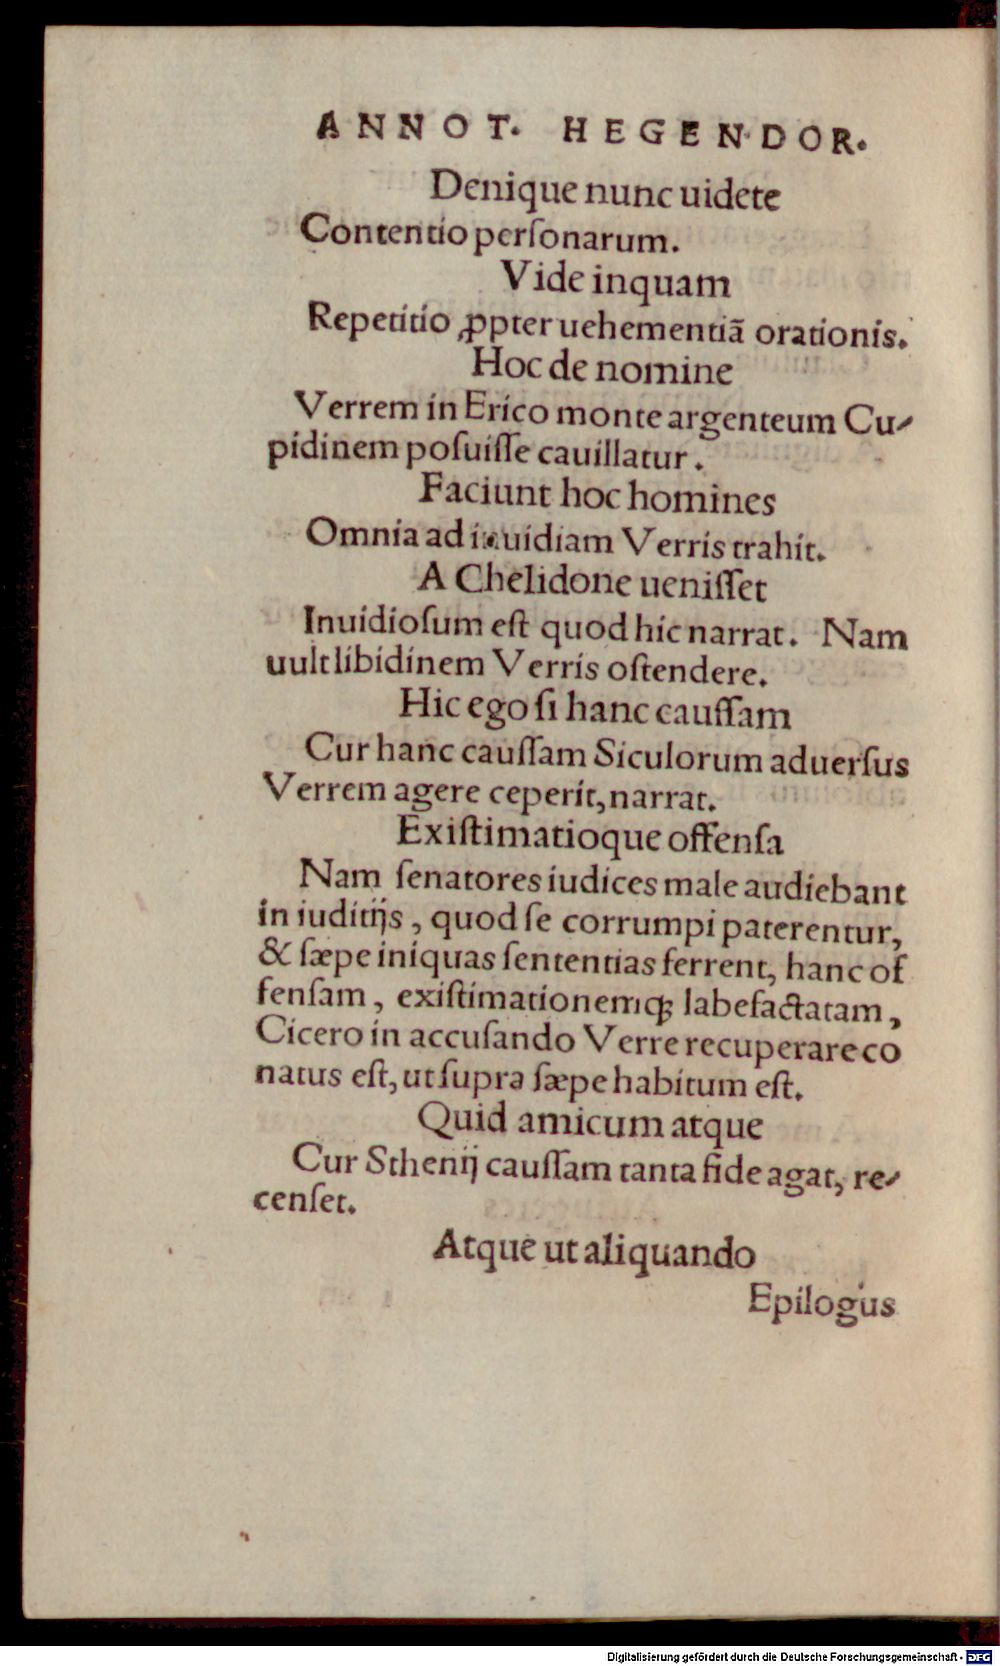 ANNOT. HEGENDOR.
Denique nunc uidete
Contentio perſonarum.
Vide inquam
Repetitio ꝓpter uehementiã orationis.
Hoc de nomine
Verrem in Erico monte argenteum Cu-
pidinem poſuiſſe cauillatur.
Faciunt hoc homines
Omnia ad inuidiam Verris trahit.
A Chelidone ueniſſet
Inuidioſum eſt quod hic narrat. Nam
uult libidinem Verris oſtendere.
Hic ego ſi hanc cauſſam
Cur hanc cauſſam Siculorum aduerſus
Verrem agere ceperit, narrat.
Exiſtimatioque offenſa
Nam ſenatores iudices male audiebant
in iuditijs, quod ſe corrumpi paterentur,
& ſæpe iniquas ſententias ferrent, hanc of
fenſam, exiſtimationemq; labefactatam,
Cicero in accuſando Verre recuperare co
natus eſt, ut ſupra ſæpe habitum eſt.
Quid amicum atque
Cur Sthenij cauſſam tanta fide agat, re-
cenſet.
Atque ut aliquando
Epilogus
Digitalisierung gefördert durch die Deutsche Forschungsgemeinschaft - DFG